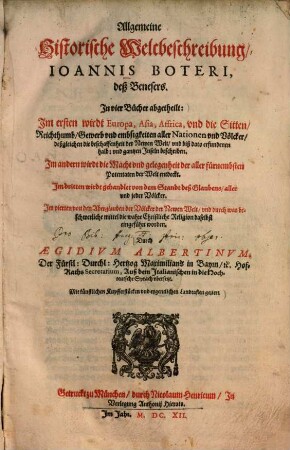 Allgemeine
Historische Weltbeschreibung/
IOANNIS BOTERI,
deß Benesers.
In vier Bücher abgetheilt:
Im ersten wirdt Europa, Asia, Affrica, vnd die Sitten/
Reichthumb/ Gewerb vnd embsigkeiten aller Nationen vnd Völcker/
deßgleichen die beschaffenheit der Newen Welt/ vnd biß dato erfundenen
halb: vnd gantzen Inseln beschriben.
Im andern wirdt die Macht vnd gelegenheit der aller fürnembsten
Potentaten der Welt entdeckt.
Im dritten wirdt gehandlet von dem Standt deß Glaubens/ aller
vnd jeder Völcker.
Im vierten von den Aberglauben der Völcker der Newen Welt/ vnd durch was
mittel die wahre Christliche Religion daselbst
eingeführt worden.
Durch
ÆGIDIVM ALBERTINVM,
Der Fürstl: Durchl: Hertzog Maximilians in Bayrn/ ꝛc. Hof-
Raths Secretarium, Auß dem Italianischen in die Hoch-
teutsche Sprach versetzt.
Mit künstlichen Kupfferstücken vnd eigentlichen Landtaflen geziert.
Getruckt zu München/ durch Nicolaum Henricum/ In
Verlegung Anthonij Hierats.
Im Jahr. M. DC. XII.